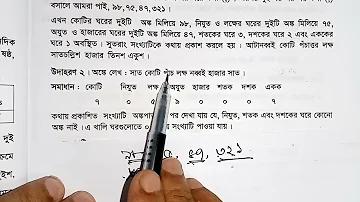 বসালে আমরা পাই, ৯৮, ৭৫, ৪৭, ৩২১।
এখন কোটির ঘরের দুইটি অঙ্ক মিলিয়ে ৯৮, নিযুত ও লক্ষের ঘরের দুইটি অঙ্ক মিলিয়ে ৭৫,
অযুত ও হাজারের ঘরের দুইটি অঙ্ক মিলিয়ে ৪৭, শতকের ঘরে ৩, দশকের ঘরে ২ এবং এককের
ঘরে ১ অবস্থিত। সুতরাং সংখ্যাটিকে কথায় প্রকাশ করলে হয়। আটানব্বই কোটি পঁচাত্তর লক্ষ
সাতচল্লিশ হাজার তিনশ একুশ।
উদাহরণ ২। অঙ্কে লেখ : সাত কোটি পাঁচ লক্ষ নব্বই হাজার সাত।
সমাধান : কোটি নিযুত লক্ষ অযুত হাজার শতক দশক একক
৭ ০ ৫ ৯ ০ ০ ০ ৭
কথায় প্রকাশিত সংখ্যাটি অঙ্কপাতের পর দেখা যায় যে, নিযুত, শতক এবং দশকের ঘরে কোনো
অঙ্ক নাই। এ খালি ঘরগুলোতে পাওয়া যায়।
৪৭, ৩২১